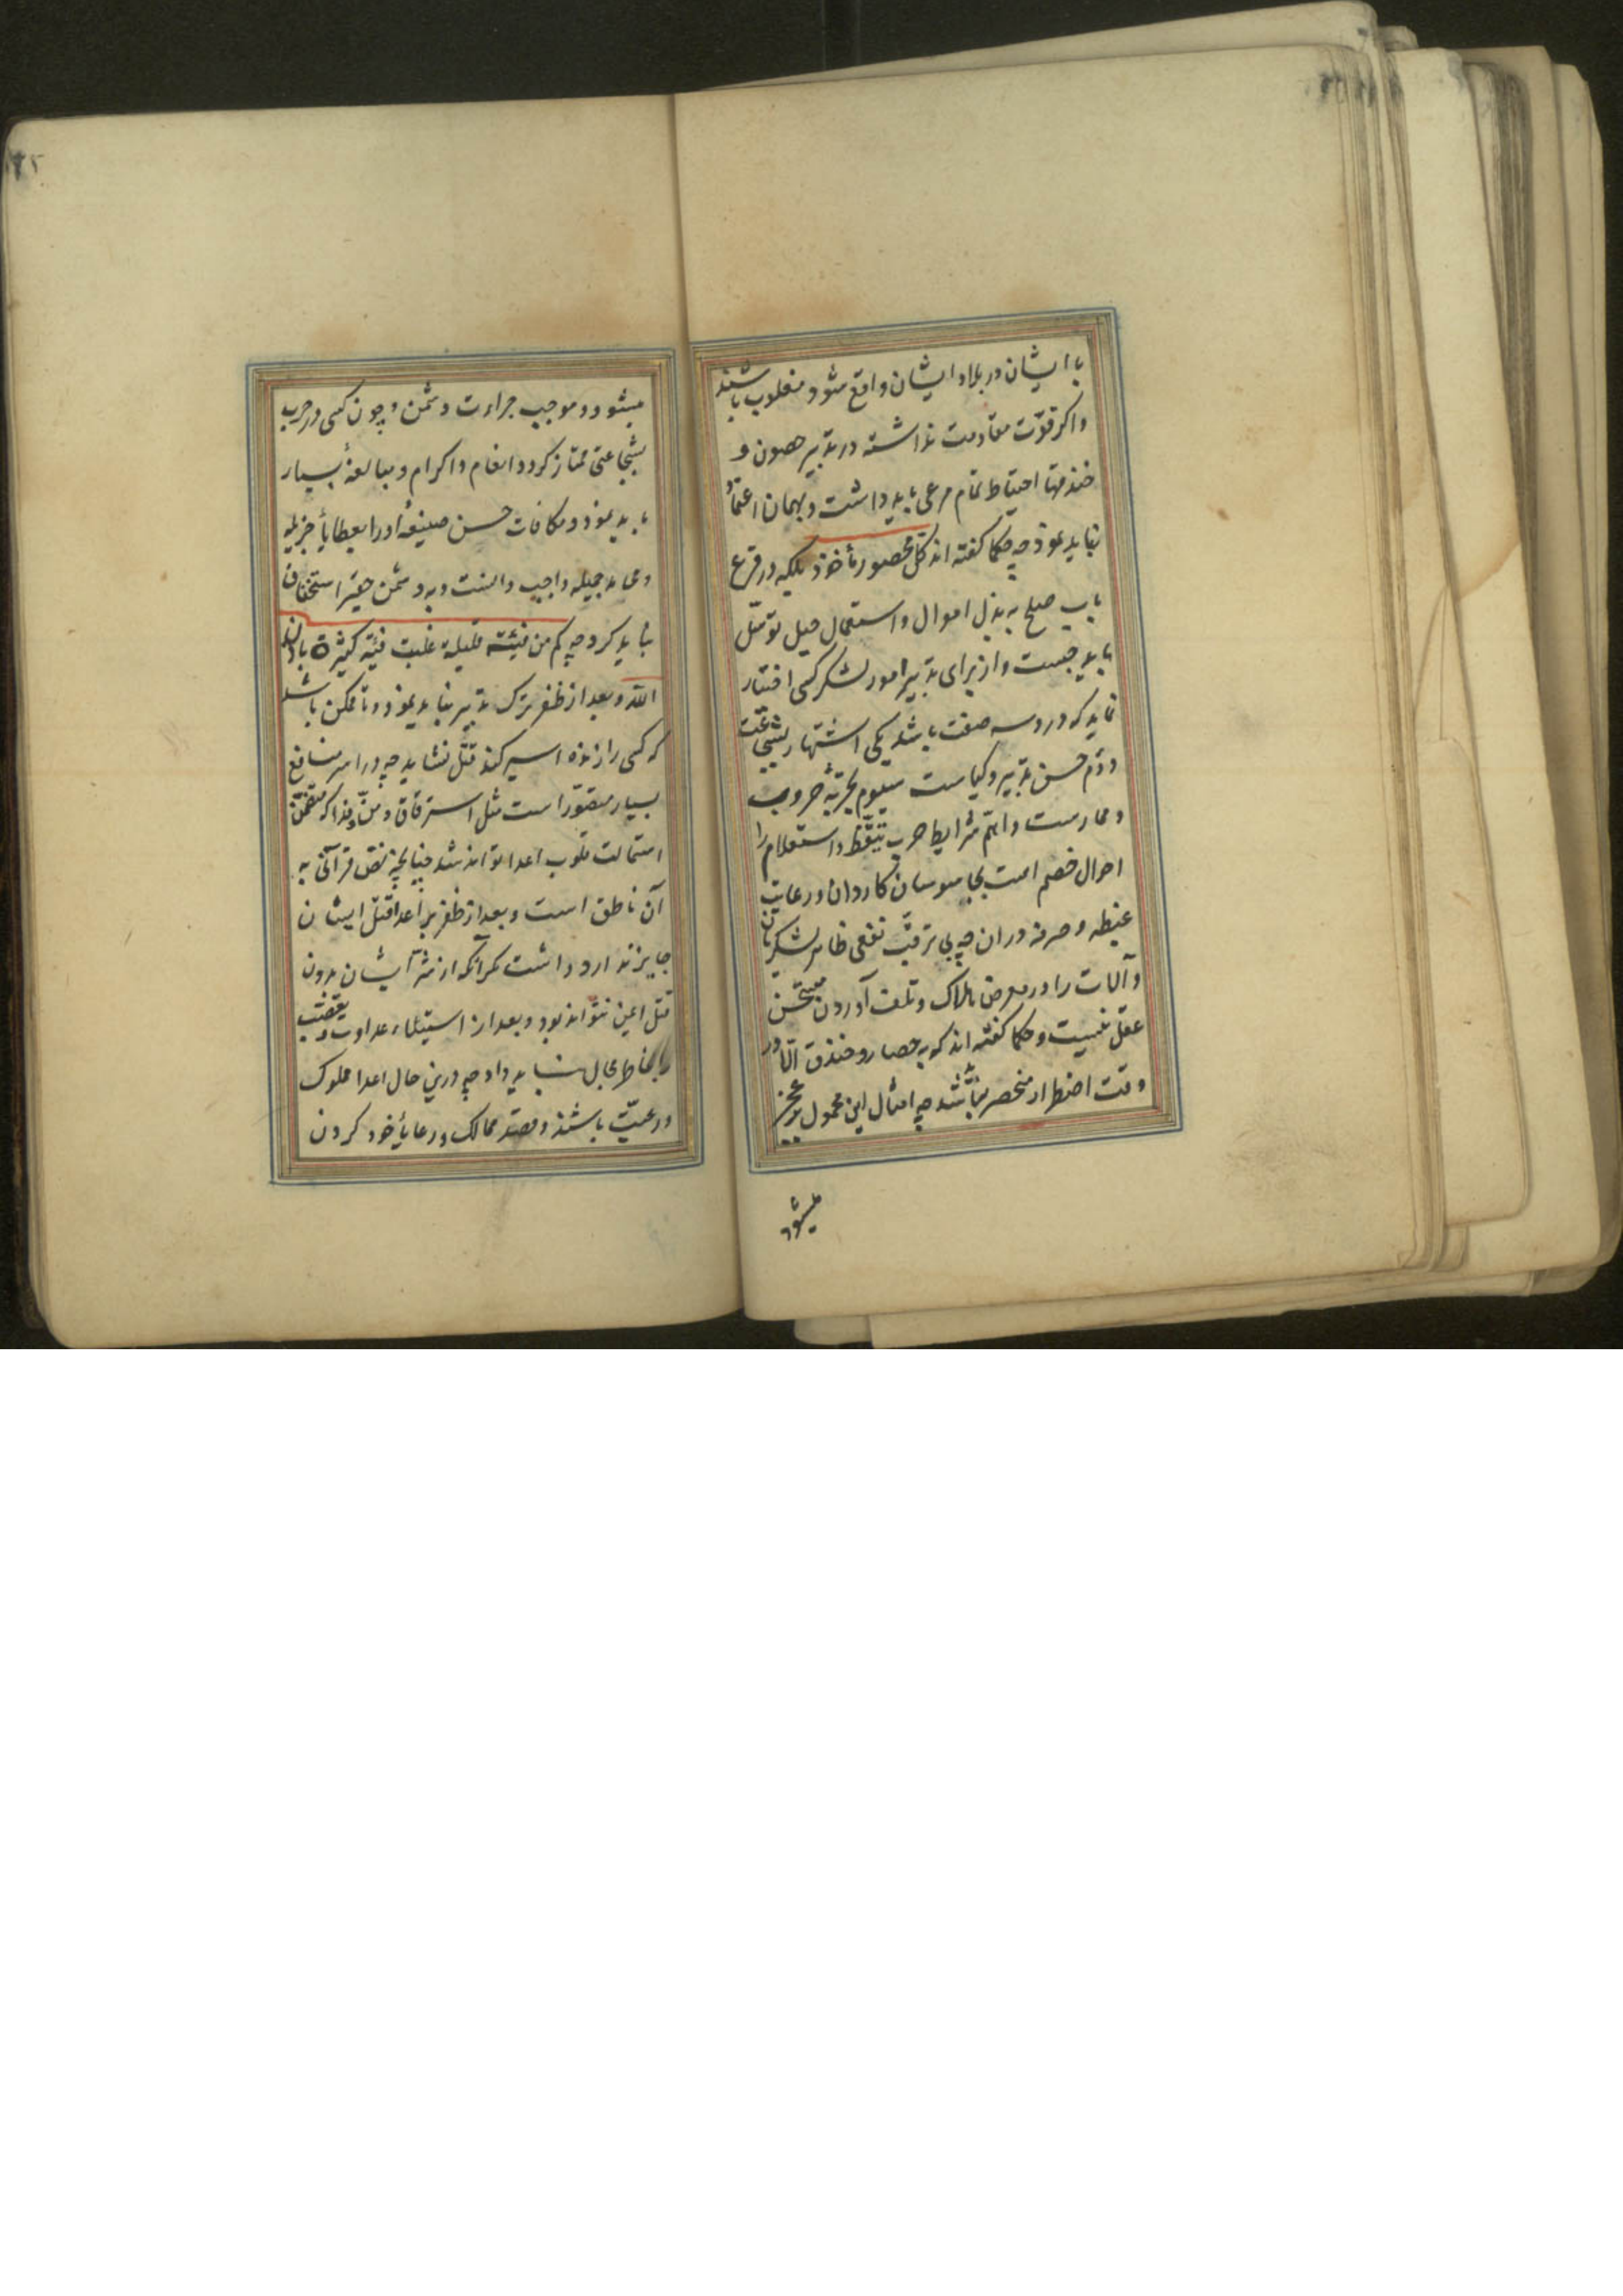 با ایشان در بلاد ایشان واقع شود مغلوب باشند
واکر قوّت مقاومت نداشته در تدبیر حصون و
خندقها احتیاط تمام مرعی باید داشت و بهمان اعتماد
نباید نموذ چه حکما کفته اند کلّ محصور مأخوذ بلکه در قرع
باب صلح به بذل اموال و استعمال حیل توسّل
باید جست و از برای تدبیر امور لشکر کسی اختیار
نماید که در وسه صفت باشد یکی اشتهار بشجاعت
دوّم حسن تدبیر و کیاست سیوم تجربهٔ حروب
و ممارست و اهمّ شرایط حرب تیقّظ و استعلام را
احوال خصم است بجاسوسان کاردان و رعایت
غبطه و صرفه در ان چه بی ترقّب نفعی ظاهر لشکریان
و آلات را در معرض هلاک و تلف آوردن مستحسن
عقل نیست و حکما کفته اند که به حصار و خندق الّا در
وقت اضطرار منحصر نباشد چه امثال این محمول بر عجز
میشود
میشود و موجب جراءت دشمن و چون کسی در حرب
بشجاعتی ممتاز کردد انعام و اکرام و مبالغهٔ بسیار
باید نمود و مکافات حسن صنیعهٔ او را بعطایأ جزیله
و محامد جمیله واجب دانست و به دشمن حقیر استخفاف
نباید کرد چه کم من فئته قلیلة غلبت فئته کثیرة باذن
الله و بعد از ظفر ترک تدبیر نباید نموذ و تا ممکن باشد
که کسی را زنده اسیر کنند قتل نشاید چه در اسر منافع
بسیار متصوّر است مثل استرقاق و منّ و فدا که متضمّن
استمالت قلوب اعدا تواند شد چنانچه نصّ قرآنی به
آن ناطق است و بعد از ظفر بر اعدا قتل ایشان
جایز ندارد داشت مکر آنکه از شرّ ایشان بدون
قتل ایمن نتواند بود و بعد از استیلاء عداوت و تعصّب
را بخاطر مجال نباید داد چه درین حال اعدا مملوک
و رعیّت باشند و قصد ممالک و رعایأ خود کردن